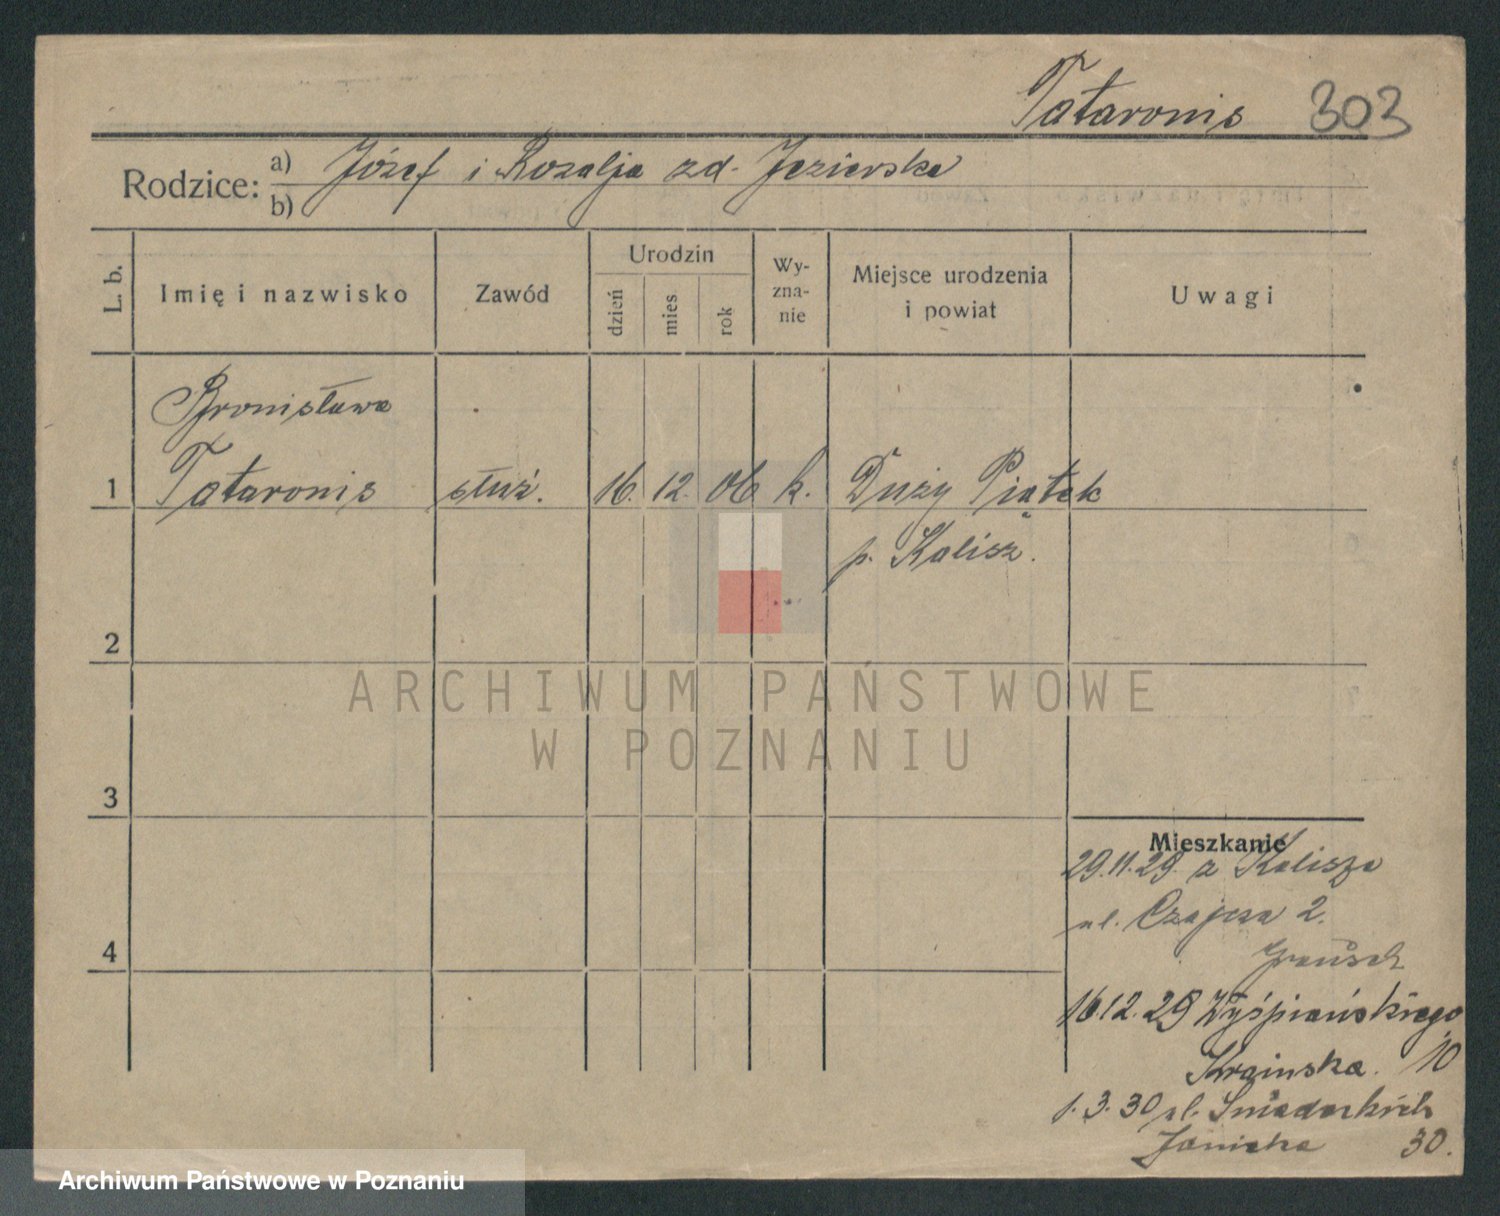 Tataronis 303
Rodzice: a) Józef i Rozalja zd. Jezierska
b)
L. b.
Imię i nazwisko
Zawód
Urodzin
dzień
mies
rok
Wy-
zna-
nie
Miejsce urodzenia
i powiat
Uwagi
Bronisława
1 Tataronis służ. 16. 12. 06 k. Duży Piątek
p. Kalisz.
2
ARCHIWUM PAŃSTWOWE
W POZNANIU
3
Mieszkanie
29.11.29. z Kalisza
ul. Czajcza 2.
4
16.12.29 Wyśpiańskiego
Kraińska. 10
1.3.30 ul. Śniadeckich
Janicka 30.
Archiwum Państwowe w Poznaniu